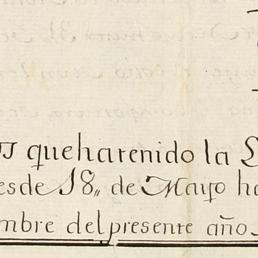 queha tenido la
desde 18,, de Mayo
mbre del presente año